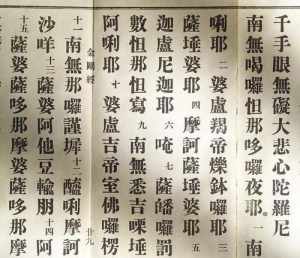 千手大悲心陀羅尼
南無喝囉怛那哆囉夜耶 一 南
唎耶 二 婆盧羯帝爍鉢囉耶 三
薩埵婆耶 四 摩訶薩埵婆耶 五
迦盧尼迦耶 六 唵 七 薩皤囉罰
數怛那怛寫 九 南無悉吉嘌埵
阿唎耶 十 婆盧吉帝室佛囉楞
金剛經 廿九
十一 南無那囉謹墀 十二 醯唎摩訶
沙咩 十三 薩婆阿他豆輸朋 十四 阿
十五 薩婆薩哆那摩婆薩哆那摩